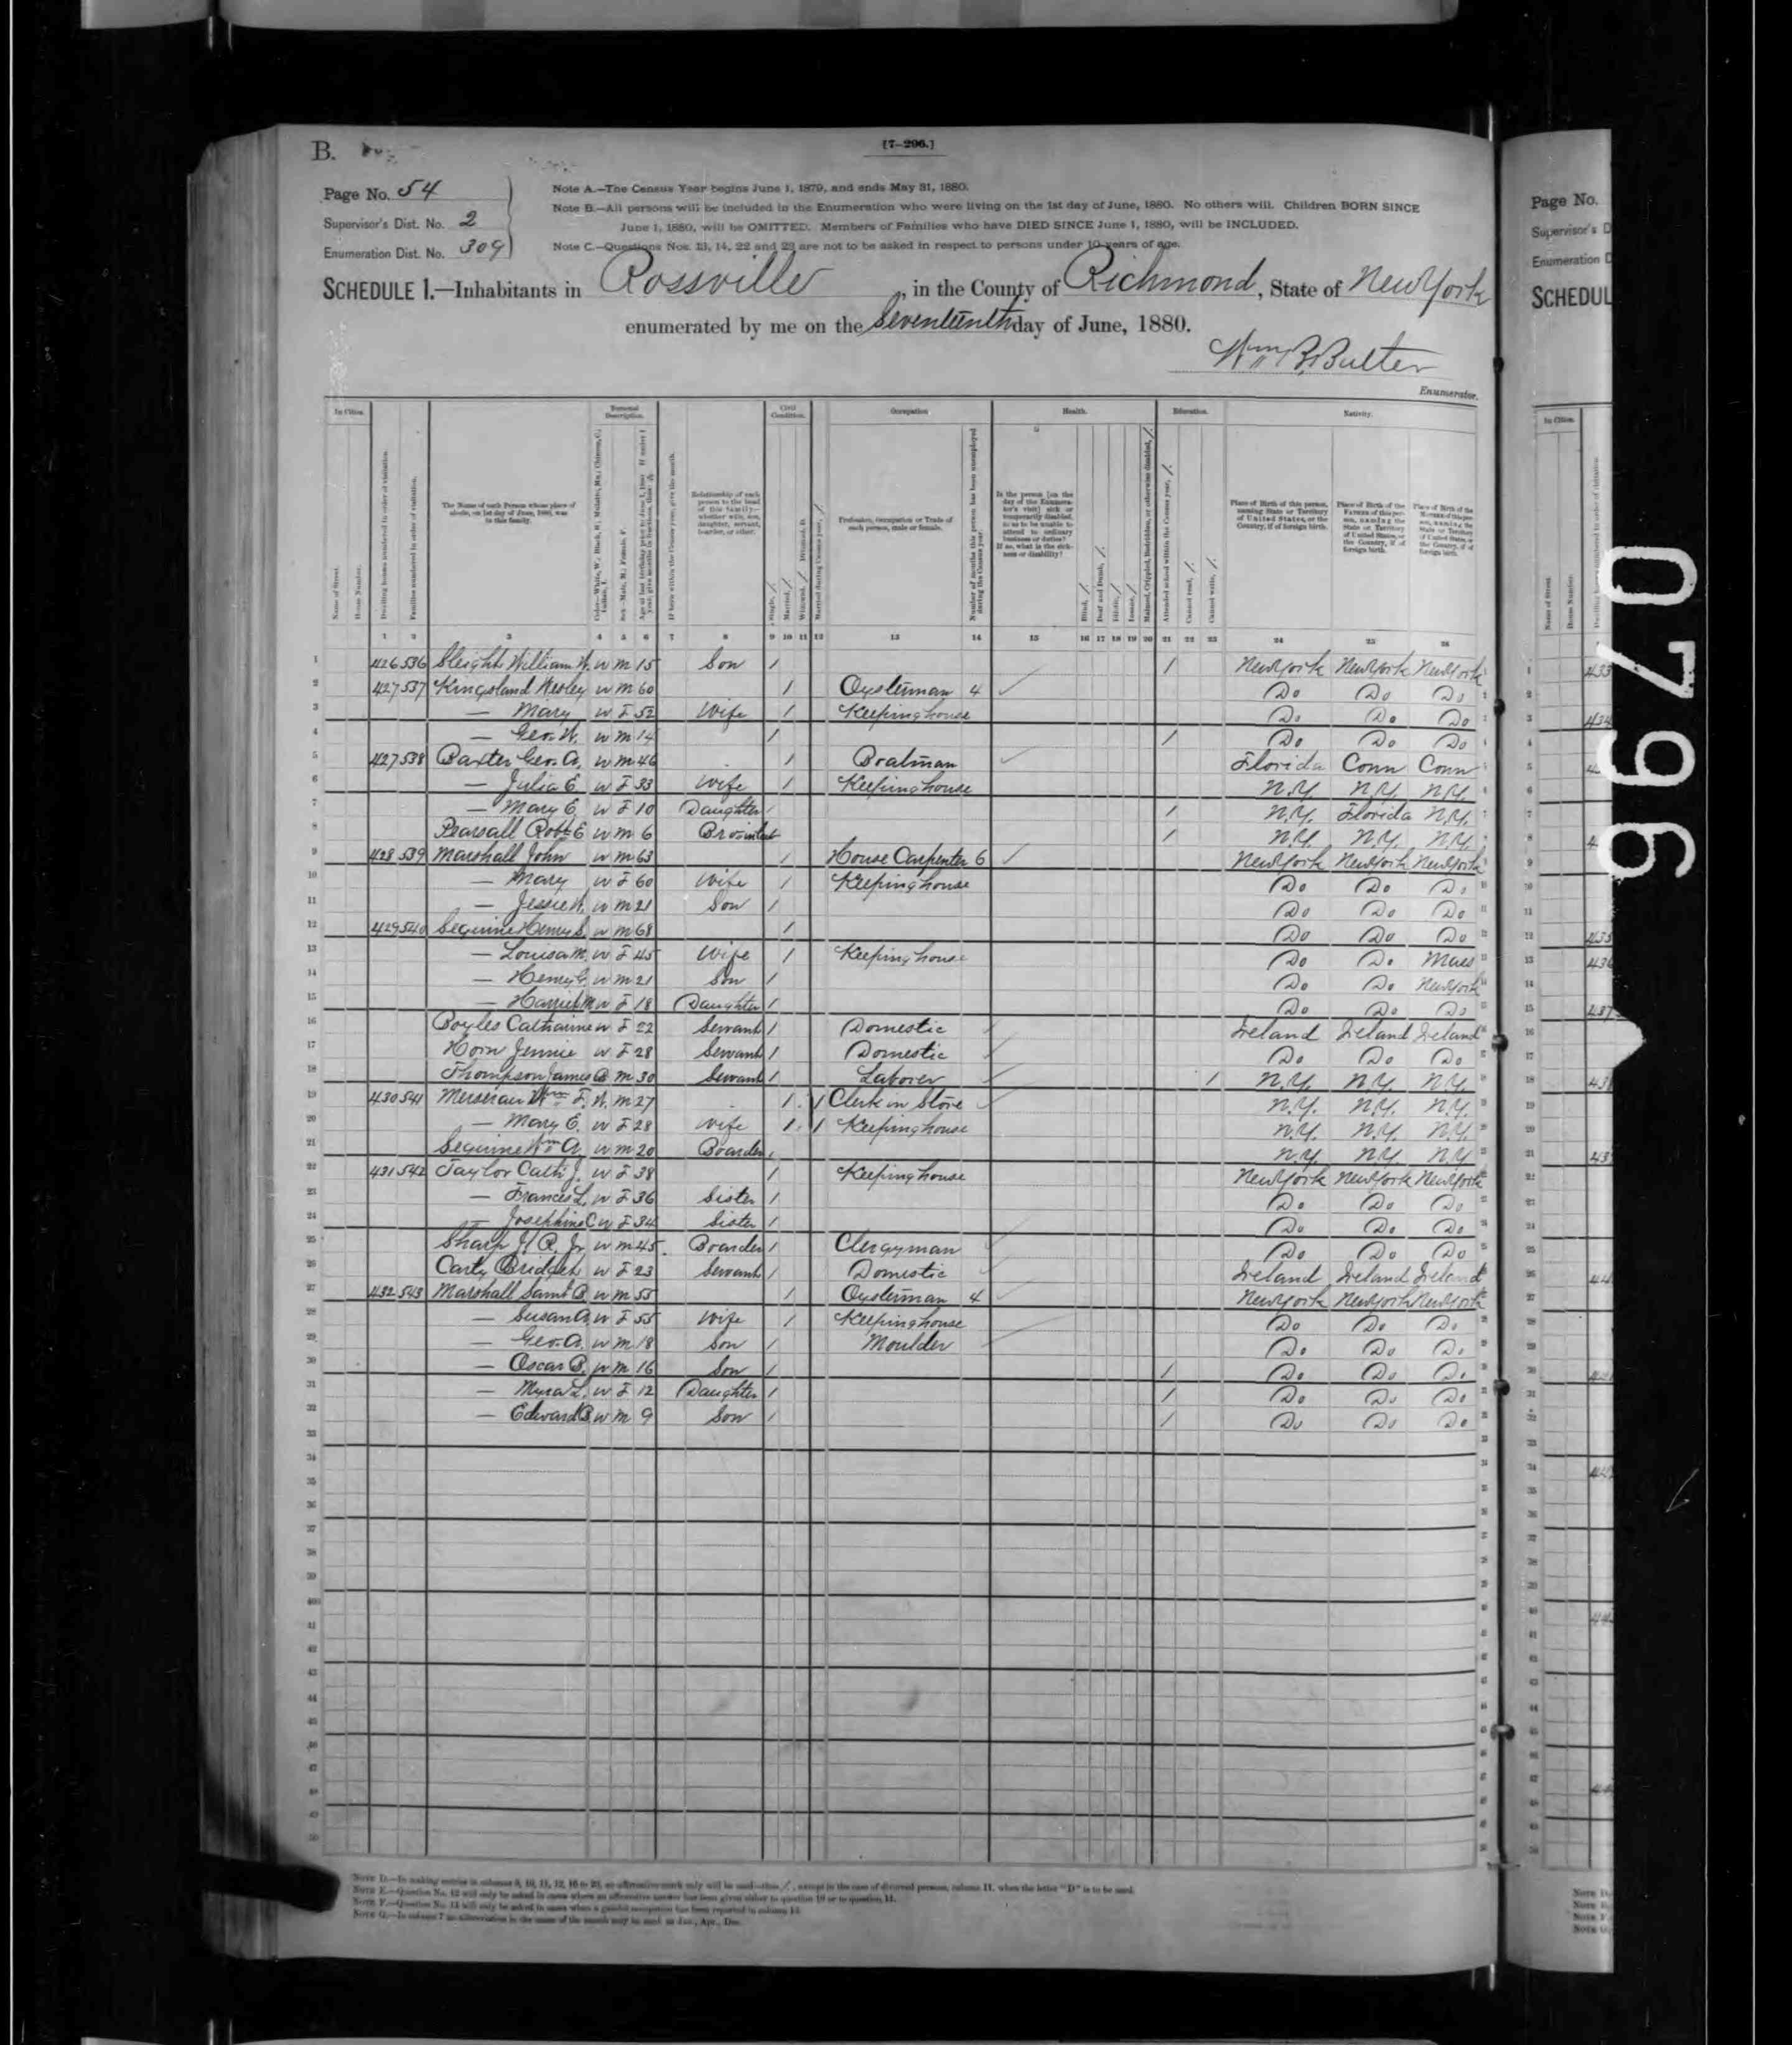 B.
[7-296.]
Page No. 54
Supervisor's Dist. No. 2
Enumeration Dist. No. 309
Note A.—The Census Year begins June 1, 1879, and ends May 31, 1880.
Note B.—All persons will be included in the Enumeration who were living on the 1st day of June, 1880. No others will. Children BORN SINCE
June 1, 1880, will be OMITTED. Members of Families who have DIED SINCE June 1, 1880, will be INCLUDED.
Note C.—Questions Nos. 13, 14, 22 and 23 are not to be asked in respect to persons under 10 years of age.
SCHEDULE 1.—Inhabitants in Rossville, in the County of Richmond, State of New York
enumerated by me on the Seventeenth day of June, 1880.
Wm B. Butler
Enumerator.
In Cities. Personal Description. Civil Condition. Occupation Health. Education. Nativity.
1 2 3 4 5 6 7 8 9 10 11 12 13 14 15 16 17 18 19 20 21 22 23 24 25 26
1 426 536 Sleight William W. W M 15 Son / / New York New York New York
2 427 537 Kingsland Wesley W M 60 / Oysterman 4 Do Do Do
3 — Mary W F 52 Wife / Keeping house Do Do Do
4 — Geo. W. W M 14 / / Do Do Do
5 427 538 Baxter Geo. A. W M 46 / Boatman Florida Conn Conn
6 — Julia E. W F 33 Wife / Keeping house N.Y. N.Y. N.Y.
7 — Mary E. W F 10 Daughter / / N.Y. Florida N.Y.
8 Pearsall Robt E W M 6 / N.Y. N.Y. N.Y.
9 428 539 Marshall John W M 63 / House Carpenter 6 New York New York New York
10 — Mary W F 60 Wife / Keeping house Do Do Do
11 — Jessie W. W M 21 Son / Do Do Do
12 429 540 Seguine Henry S. W M 68 / Do Do Do
13 — Louisa M. W F 45 Wife / Keeping house Do Do Mass
14 — Henry G. W M 21 Son / Do Do New York
15 — Harriet M W F 18 Daughter / Do Do Do
16 Boyles Catharine W F 22 Servant / Domestic Ireland Ireland Ireland
17 Horn Jennie W F 28 Servant / Domestic Do Do Do
18 Thompson James B M 30 Servant / Laborer / N.Y. N.Y. N.Y.
19 430 541 Merserau Wm F. W. M 27 / / Clerk in Store N.Y. N.Y. N.Y.
20 — Mary E. W F 28 Wife / / Keeping house N.Y. N.Y. N.Y.
21 Seguine Wm A. W M 20 Boarder / N.Y. N.Y. N.Y.
22 431 542 Taylor Cath J. W F 38 / Keeping house New York New York New York
23 — Frances L. W F 36 Sister / Do Do Do
24 — Josephine C W F 34 Sister / Do Do Do
25 Sharp J. R. Jr W M 45 Boarder / Clergyman Do Do Do
26 Carty Bridget W F 23 Servant / Domestic Ireland Ireland Ireland
27 432 543 Marshall Saml B W M 55 / Oysterman 4 New York New York New York
28 — Susan A. W F 55 Wife / Keeping house Do Do Do
29 — Geo. A. W M 18 Son / Moulder Do Do Do
30 — Oscar B. W M 16 Son / / Do Do Do
31 — Myra L. W F 12 Daughter / / Do Do Do
32 — Edward B. W M 9 Son / / Do Do Do
33
34
35
36
37
38
39
40
41
42
43
44
45
46
47
48
49
50
Note D.—In making entries in columns 9, 10, 11, 12, 16 to 23, an affirmative mark only will be used—thus /, except in the case of divorced persons, column 11, when the letter "D" is to be used.
Note E.—Question No. 12 will only be asked in cases where an affirmative answer has been given either to question 10 or to question 11.
Note F.—Question No. 14 will only be asked in cases when a gainful occupation has been reported in column 13.
Note G.—In column 7 an abbreviation in the name of the month may be used as Jan., Apr., Dec.
Page No.
Supervisor's D
Enumeration D
SCHEDUL
In Cities.
0796